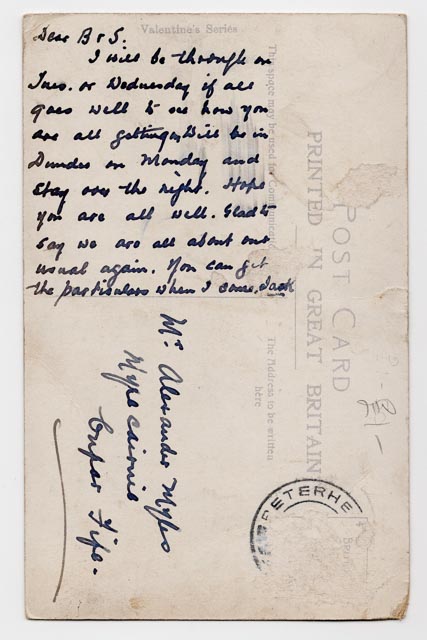 Valentine's Series
Dear B & S.
I will be through on
Tues. or Wednesday if all
goes well to see how you
are all getting on, Will be in
Dundee on Monday and
stay over the night. Hope
you are all well. Glad to
say we are all about our
usual again. You can get
the particulars when I come, Jack
This space may be used for Communication
POST CARD
PRINTED IN GREAT BRITAIN
The Address to be written
here
Mr Alexander
Cupar Fife.
PETERHE
£1-